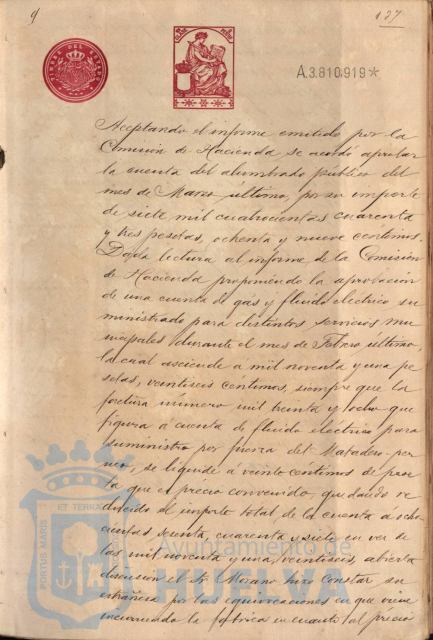 9
137
TIMBRE DEL ESTADO
A.3.810.919*
Aceptando el informe emitido por la
Comisión de Hacienda se acordó aprobar
la cuenta del alumbrado público del
mes de Marzo último, por su importe
de siete mil cuatrocientas cuarenta
y tres pesetas, ochenta y nueve centimos.
Dada lectura al informe de la Comisión
de Hacienda proponiendo la aprobación
de una cuenta de gas y fluido electrico su
ministrado para distintos servicios mu
nicipales durante el mes de Febrero ultimo
la cual asciende á mil noventa y una pe
setas, veintiseis céntimos, siempre que la
factura número mil treinta y ocho que
figura á cuenta de fluido electrico para
suministro por fuerza del Matadero
se liquide á veinte centimos de
que es precio convenido, quedando re
ducido el importe total, de la cuenta á ocho
cientas sesenta, cuarenta y siete en vez de
las mil noventa y una, veintiseis, abierta
discusion el Sr. Morano hizo constar su
extrañeza por las equivocaciones en que viene
incurriendo la fábrica en cuanto al precio
PORTUS MARIS ET TERRAE
Ayuntamiento de
HUELVA